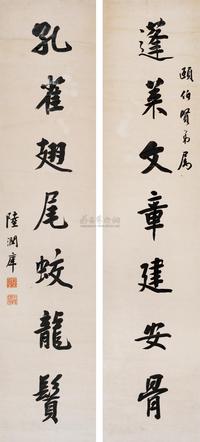 頤伯賢弟屬
蓬莱文章建安骨
孔雀翅尾蛟龍鬢
陸潤庠